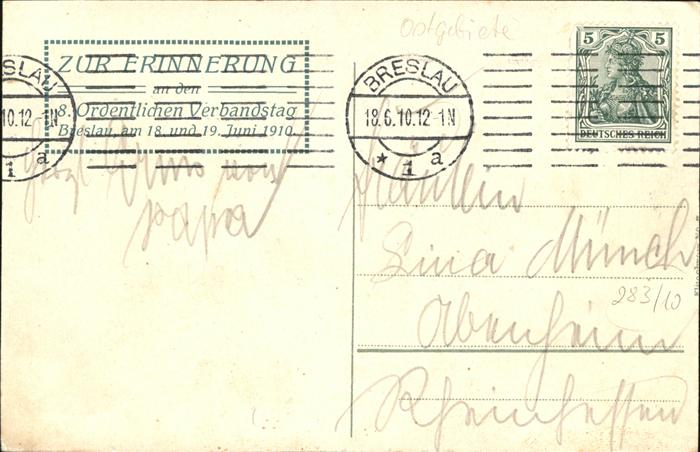 Ostgebiete
ZUR ERINNERUNG
an den
8. Ordentlichen Verbandstag
Breslau, am 18. und 19. Juni 1910.
SLAU
10.12-1N
1 a
BRESLAU
18.6.10.12-1N
* 1 a
5 5
DEUTSCHES REICH
Herzl. Gruss von
papa
Fräulein
Lina Münch
Abenheim
283/10
Rheinhessen